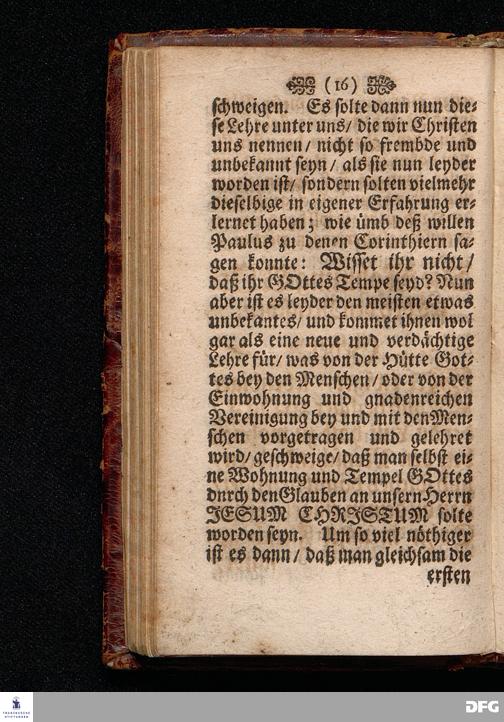 (16)
schweigen. Es solte dann nun die⸗
se Lehre unter uns/ die wir Christen
uns nennen/ nicht so frembde und
unbekannt seyn/ als sie nun leyder
worden ist/ sondern solten vielmehr
dieselbige in eigener Erfahrung er⸗
lernet haben; wie ümb deß willen
Paulus zu denen Corinthiern sa⸗
gen konnte: Wisset ihr nicht/
daß ihr GOttes Tempe seyd? Nun
aber ist es leyder den meisten etwas
unbekantes/ und kommet ihnen wol
gar als eine neue und verdächtige
Lehre für/ was von der Hütte Got⸗
tes bey den Menschen/ oder von der
Einwohnung und gnadenreichen
Vereinigung bey und mit den Men⸗
schen vorgetragen und gelehret
wird/ geschweige/ daß man selbst ei⸗
ne Wohnung und Tempel GOttes
dnrch den Glauben an unsern Herrn
JESUM CHRISTUM solte
worden seyn. Um so viel nöthiger
ist es dann/ daß man gleichsam die
ersten
FRANCKESCHE
STIFTUNGEN
DFG